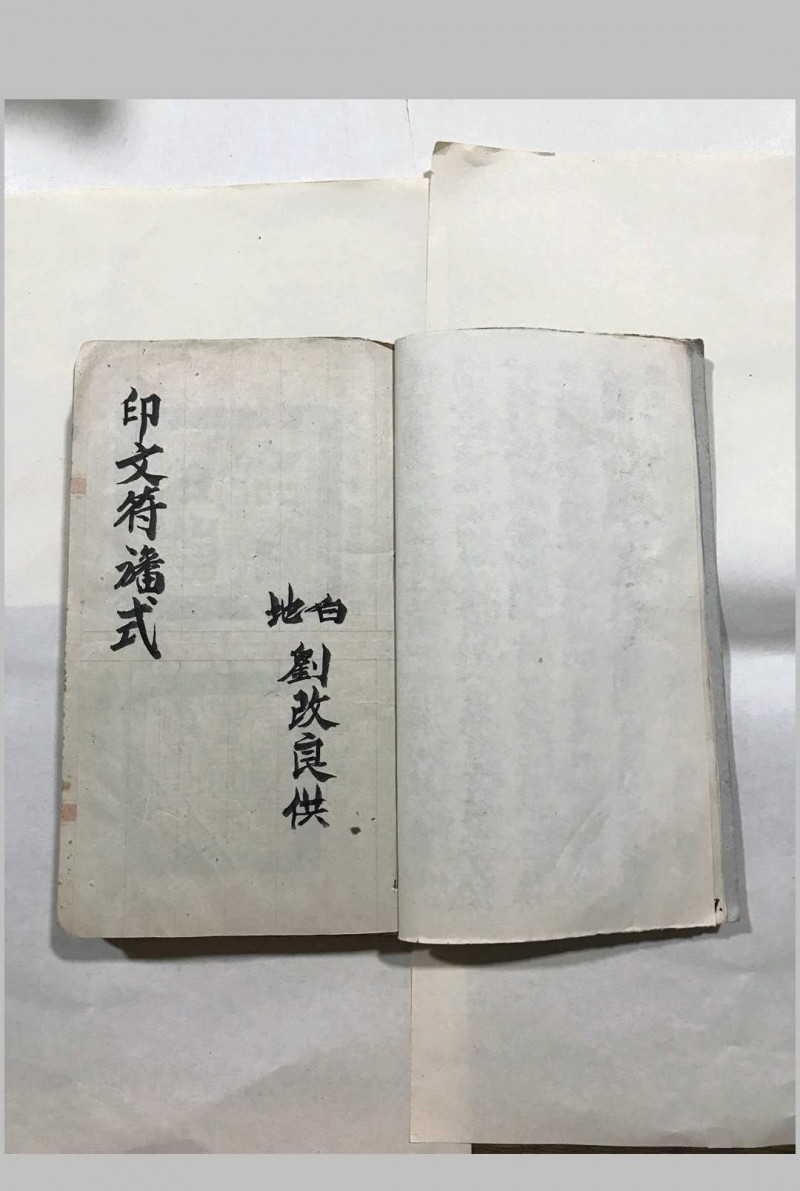 白地
劉改良供
印文符旛式